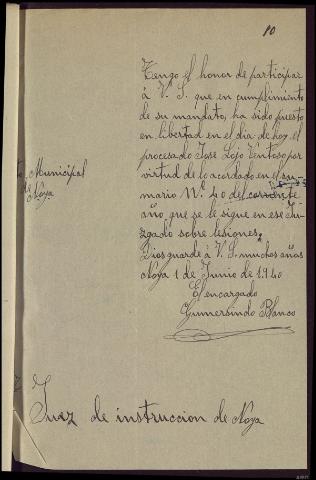 10
Tengo el honor de participar
á V. S. que en cumplimiento
de su mandato, ha sido puesto
en libertad en el dia de hoy el
procesado José Lojo Ventoso por
virtud de lo acordado en el su
mario Nº 40 del corriente
año que se le sigue en ese Juz
gado sobre lesiones.
Dios guarde á V. S. muchos años
Noya 1 de Junio de 1940
El encargado
Gumersindo Blanco
Municipal
de
Noya
Juez de instruccion de Noya